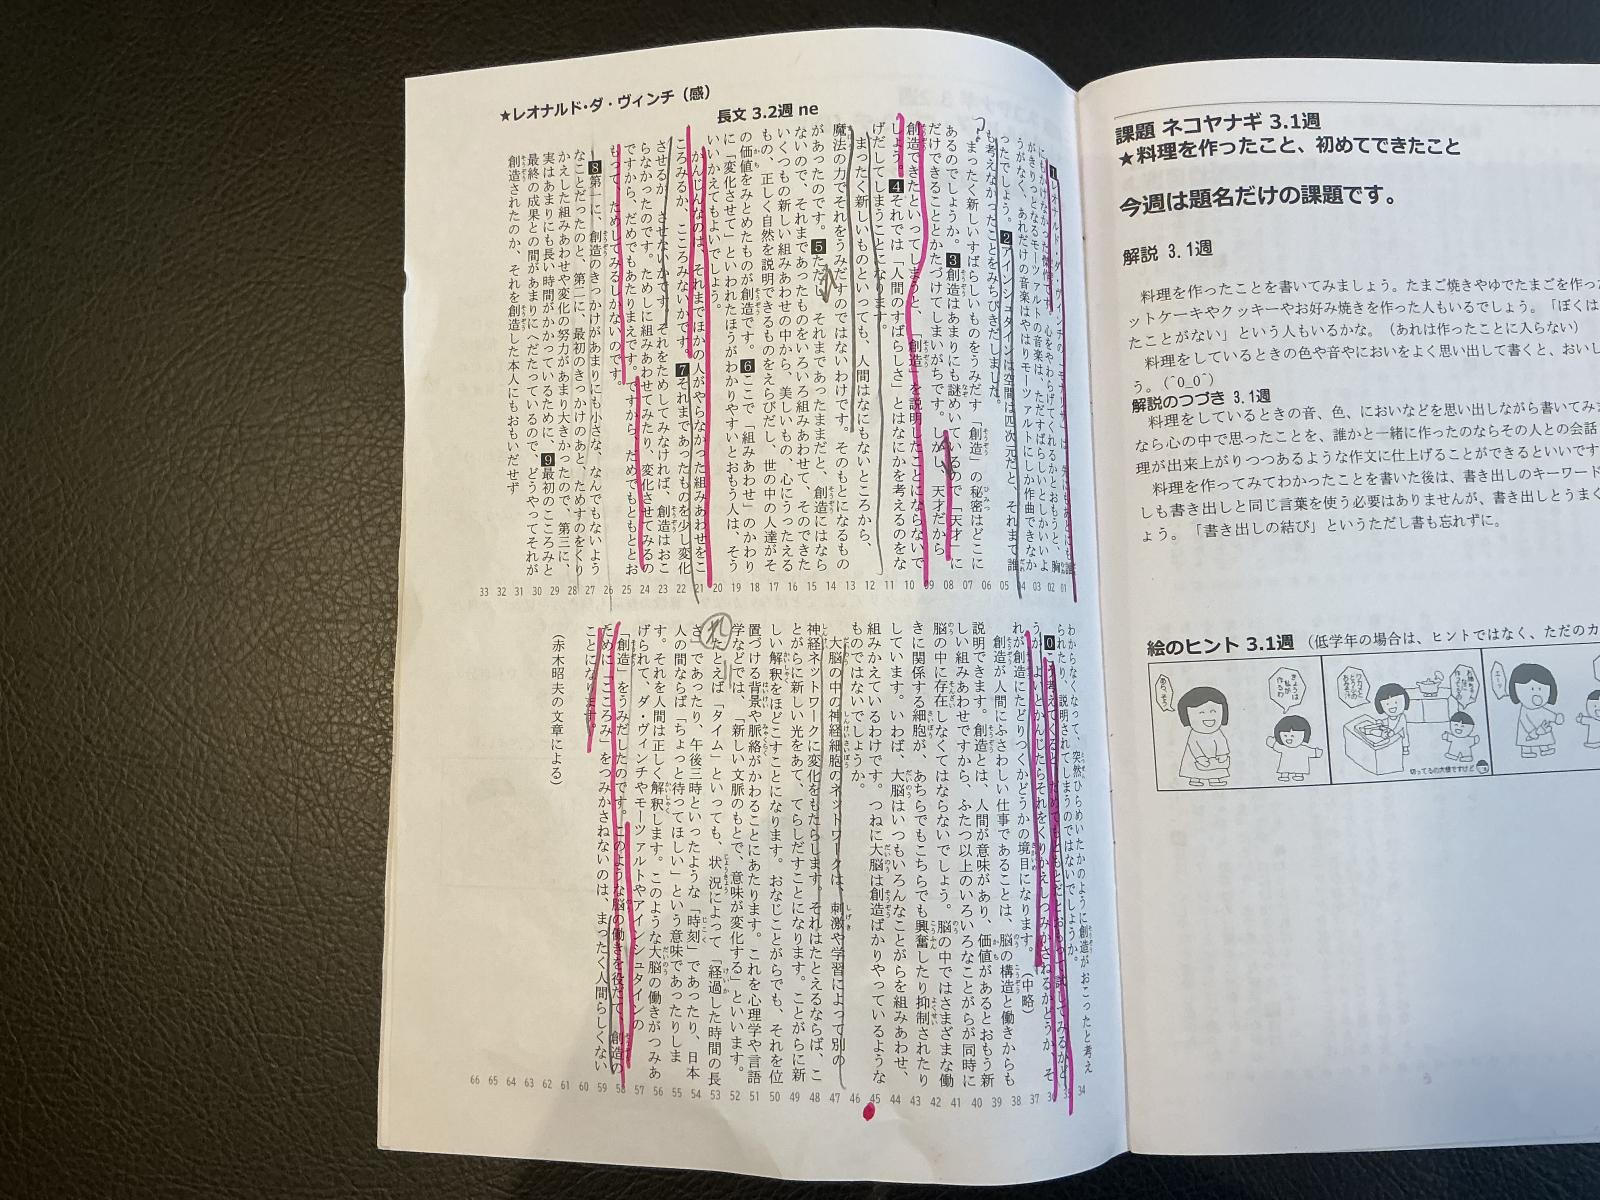 ★レオナルド・ダ・ヴィンチ（感）
長文 3.2週 ne
ったでしょう。2アインシュタインは空間は四次元だと、それまで誰
も考えなかったことをみちびきだしました。
まったく新しいすばらしいものをうみだす「創造」の秘密はどこに
あるのでしょうか。3創造はあまりにも謎めいているので「天才」に
だけできることとかたづけてしまいがちです。しかし、天才だから
創造できたといってしまうと、「創造」を説明したことにならないで
しょう。4それでは「人間のすばらしさ」とはなにかを考えるのをな
げだしてしまうことになります。
まったく新しいものといっても、人間はなにもないところから、
魔法の力でそれをうみだすのではないわけです。そのもとになるもの
があったのです。5ただ、それまであったままだと、創造にはなら
ないので、それまであったものをいろいろ組みあわせて、そのできた
いくつもの新しい組みあわせの中から、美しいもの、心にうったえる
もの、正しく自然を説明できるものをえらびだし、世の中の人達がそ
の価値をみとめたものが創造です。6ここで「組みあわせ」のかわり
に「変化させて」といわれたほうがわかりやすいとおもう人は、そう
いいかえてもよいでしょう。
かんじんなのは、それまでほかの人がやらなかった組みあわせをこ
ころみるか、こころみないかです。7それまであったものを少し変化
させるか、させないかです。それをためしてみなければ、創造はおこ
らなかったのです。ためしに組みあわせてみたり、変化させてみるの
ですから、だめでもあたりまえです。ですから、だめでもともととお
もって、ためしてみるしかないのです。
8第一に、創造のきっかけがあまりにも小さな、なんでもないよう
なことだったのと、第二に、最初のきっかけのあと、ためすのをくり
かえした組みあわせや変化の努力があまり大きかったので、第三に、
実はあまりにも長い時間がかかっているために、9最初のこころみと
最終の成果との間があまりにへだたっているので、どうやってそれが
創造されたのか、それを創造した本人にもおもいだせず
33 32 31 30 29 28 27 26 25 24 23 22 21 20 19 18 17 16 15 14 13 12 11 10 09 08 07 06 05 04 03 02 01
わからなくなって、突然ひらめいたかのように創造がおこったと考え
られたり、説明されてしまうのではないでしょうか。
0こう考えてくると、だめでもともとだとおもって試してみるかど
うか、よいとかんじたらそれをくりかえしつみかさねるかどうか、そ
れが創造にたどりつくかどうかの境目になります。（中略）
創造が人間にふさわしい仕事であることは、脳の構造と働きからも
説明できます。創造とは、人間が意味があり、価値があるとおもう新
しい組みあわせですから、ふたつ以上のいろいろなことがらが同時に
脳の中に存在しなくてはならないでしょう。脳の中ではさまざまな働
きに関係する細胞が、あちらでもこちらでも興奮したり抑制されたり
しています。いわば、大脳はいつもいろんなことがらを組みあわせ、
組みかえているわけです。つねに大脳は創造ばかりやっているような
ものではないでしょうか。
大脳の中の神経細胞のネットワークは、刺激や学習によって別の
神経ネットワークに変化をもたらします。それはたとえるならば、こ
とがらに新しい光をあて、てらしだすことになります。ことがらに新
しい解釈をほどこすことになります。おなじことがらでも、それを位
置づける背景や脈絡がかわることにあたります。これを心理学や言語
学などでは、「新しい文脈のもとで、意味が変化する」といいます。
たとえば「タイム」といっても、状況によって「経過した時間の長
さ」であったり、午後三時といったような「時刻」であったり、日本
人の間ならば「ちょっと待ってほしい」という意味であったりしま
す。それを人間は正しく解釈します。このような大脳の働きがつみあ
げられて、ダ・ヴィンチやモーツァルトやアインシュタインの
「創造」をうみだしたのです。このような脳の働きを役だて、創造の
ために「こころみ」をつみかさねないのは、まったく人間らしくない
ことになります。
（赤木昭夫の文章による）
66 65 64 63 62 61 60 59 58 57 56 55 54 53 52 51 50 49 48 47 46 45 44 43 42 41 40 39 38 37 36 35 34
れ
課題 ネコヤナギ 3.1週
★料理を作ったこと、初めてできたこと
今週は題名だけの課題です。
解説 3.1週
料理を作ったことを書いてみましょう。たまご焼きやゆでたまごを作った
ットケーキやクッキーやお好み焼きを作った人もいるでしょう。「ぼくは
たことがない」という人もいるかな。（あれは作ったことに入らない）
料理をしているときの色や音やにおいをよく思い出して書くと、おいし
う。(^0_0^)
解説のつづき 3.1週
料理をしているときの音、色、においなどを思い出しながら書いてみま
なら心の中で思ったことを、誰かと一緒に作ったのならその人との会話
理が出来上がりつつあるような作文に仕上げることができるといいです
料理を作ってみてわかったことを書いた後は、書き出しのキーワード
しも書き出しと同じ言葉を使う必要はありませんが、書き出しとうまく
ょう。「書き出しの結び」というただし書も忘れずに。
絵のヒント 3.1週 （低学年の場合は、ヒントではなく、ただのカ